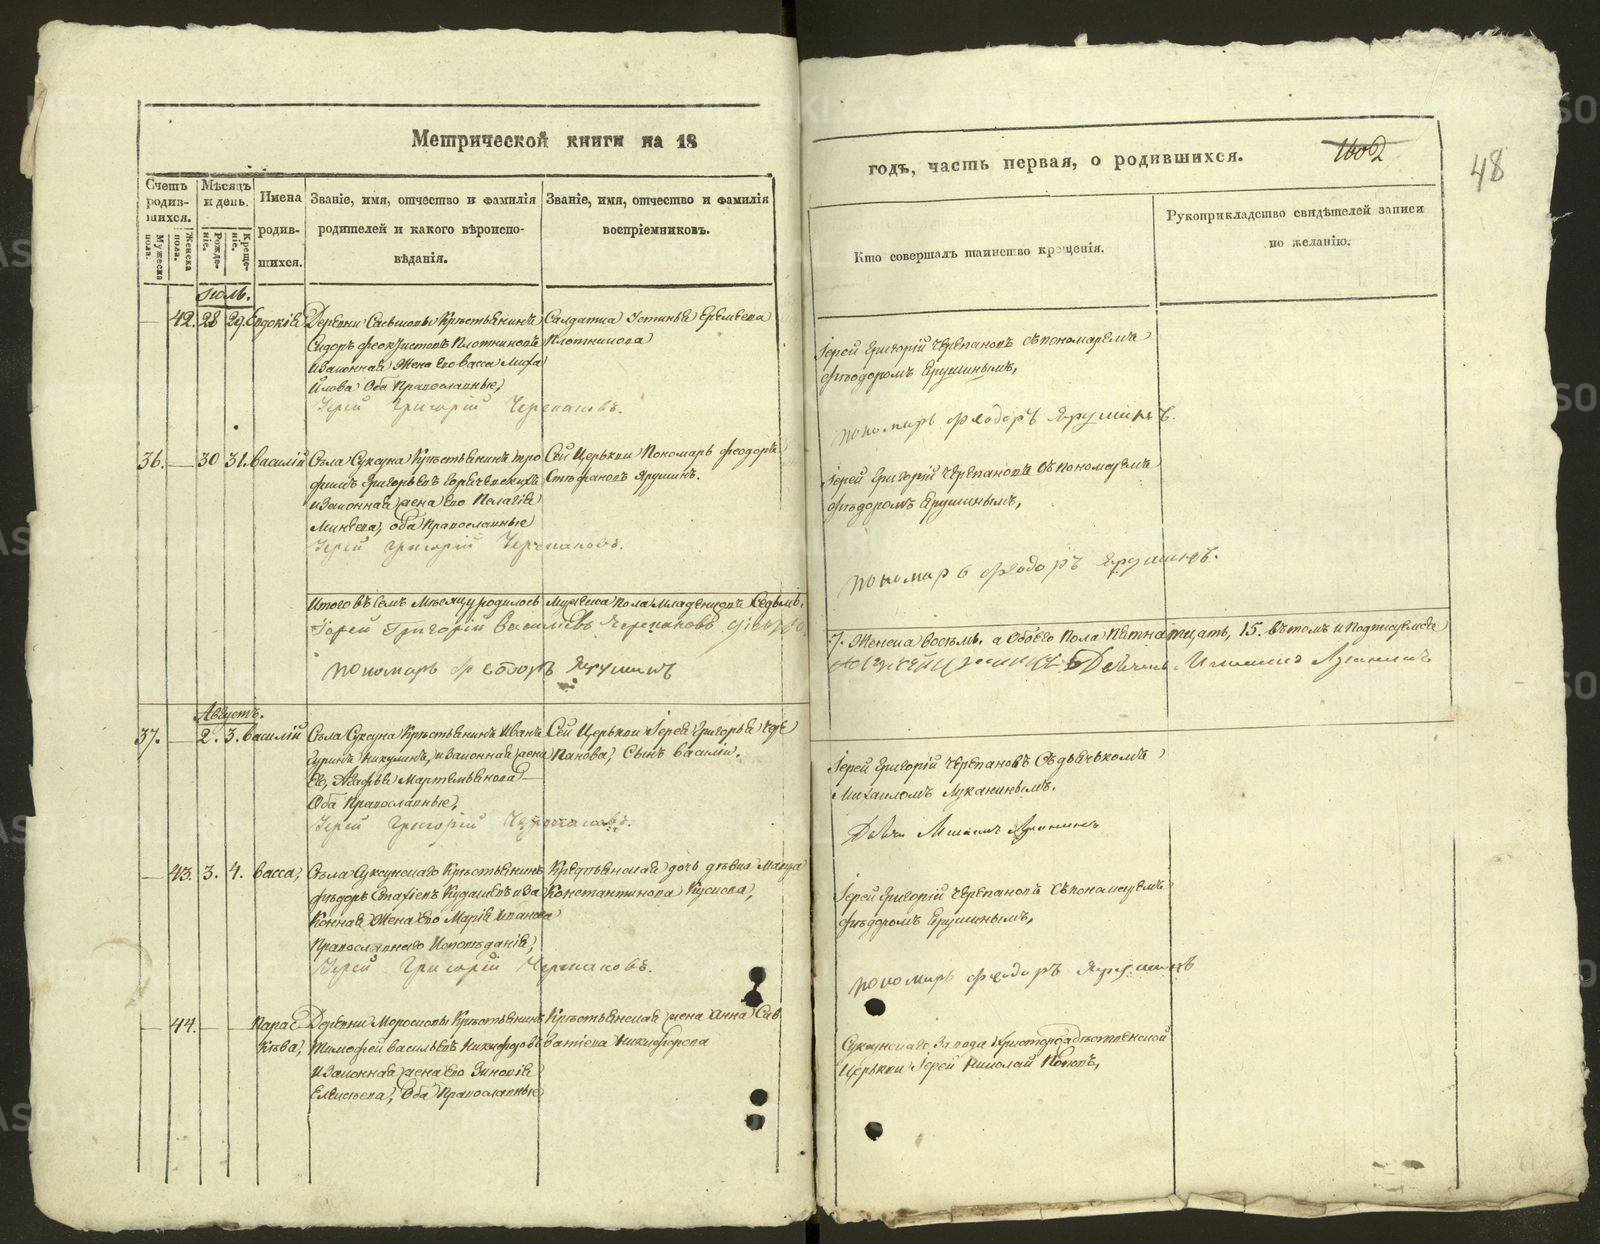 Метрической книги на 18
годъ, часть первая, о родившихся.
1602
48
Счетъ родив-шихся.
Мужеска пола.
Женска пола.
Мѣсяцъ и день.
Рожде-ніе.
Креще-ніе.
Имена родив-шихся.
Званіе, имя, отчество и фамилія
родителей и какого вѣроиспо-
вѣданія.
Званіе, имя, отчество и фамилія
воспріемниковъ.
Кто совершалъ таинство крещенія.
Рукоприкладство свидѣтелей записи
по желанію.
Іюль.
42. 28 29. Евдокія
Деревни Крестьянинъ
Сидоръ Феоктистовъ Плотниковъ
и Законная Жена его Васса Миха
йлова Оба Православные,
Іерей Григорій Черепановъ.
Салдатка Устинья Еремеева
Плотникова
Іерей Григорій Черепановъ съ пономаремъ
Ѳеодоромъ Ярушинымъ,
пономарь Феодоръ Ярушинъ.
36. 30 31. Василій
Села Суксуна Крестьянинъ Тро
фимъ Григорьевъ
и Законная жена его Пелагія
Минеева, оба Православные
Іерей Григорій Черепановъ.
Сей Церкви Пономарь Феодоръ
Стефановъ Ярушинъ.
Іерей Григорій Черепановъ съ пономаремъ
Ѳеодоромъ Ярушинымъ,
пономарь Феодоръ Ярушинъ.
Итого въ семъ Месяцу родилось Мужеска пола Младенцовъ Седмь,
7. Женска восемь. а Обоего Пола Пятнатцать, 15. въ томъ и Подписуемся
Іерей Григорій Васильевъ Черепановъ
Дьячекъ Михаилъ Луканинъ
пономарь Феодоръ Ярушинъ
Августъ.
37. 2. 3. Василій
Села Суксуна Крестьянинъ Иванъ
Никулинъ, и Законная жена
Его, Агафья Мартемьянова
Оба Православные,
Іерей Григорій Черепановъ.
Сей Церкви Іерея Григорья Чере
панова, Сынъ Василій.
Іерей Григорій Черепановъ Съ дьячькомъ
Михаиломъ Луканинымъ.
Дьячекъ Михаилъ Луканинъ
43. 3. 4. Васса,
Села Суксунскаго Крестьянинъ
Ѳедоръ и За
конная Жена его Марія Иванова
Православнаго Исповѣданія,
Іерей Григорій Черепановъ.
Крестьянская дочь девка Марѳа
Константинова
Іерей Григорій Черепановъ съ пономаремъ
Ѳедоромъ Ярушинымъ,
пономарь Феодоръ Ярушинъ
44. Параскева,
Деревни Моросковы Крестьянинъ
Тимофей Васильевъ Никифоровъ
и Законная жена его Зиновія
Елисеева, Оба Православные
Крестьянская жена Анна Сав
ватіева Никифорова
Суксунскаго Завода Христорождественской
Церкви Іерей Николай Поповъ,